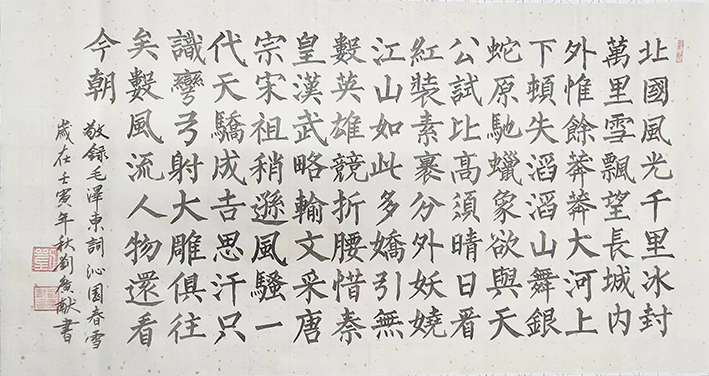 北國風光千里冰封
萬里雪飄望長城內
外惟餘莽莽大河上
下頓失滔滔山舞銀
蛇原馳蠟象欲與天
公試比高須晴日看
紅裝素裹分外妖嬈
江山如此多嬌引無
數英雄競折腰惜秦
皇漢武略輸文采唐
宗宋祖稍遜風騷一
代天驕成吉思汗只
識彎弓射大雕俱往
矣數風流人物還看
今朝
敬錄毛澤東詞沁園春雪
歲在壬寅年秋劉献書